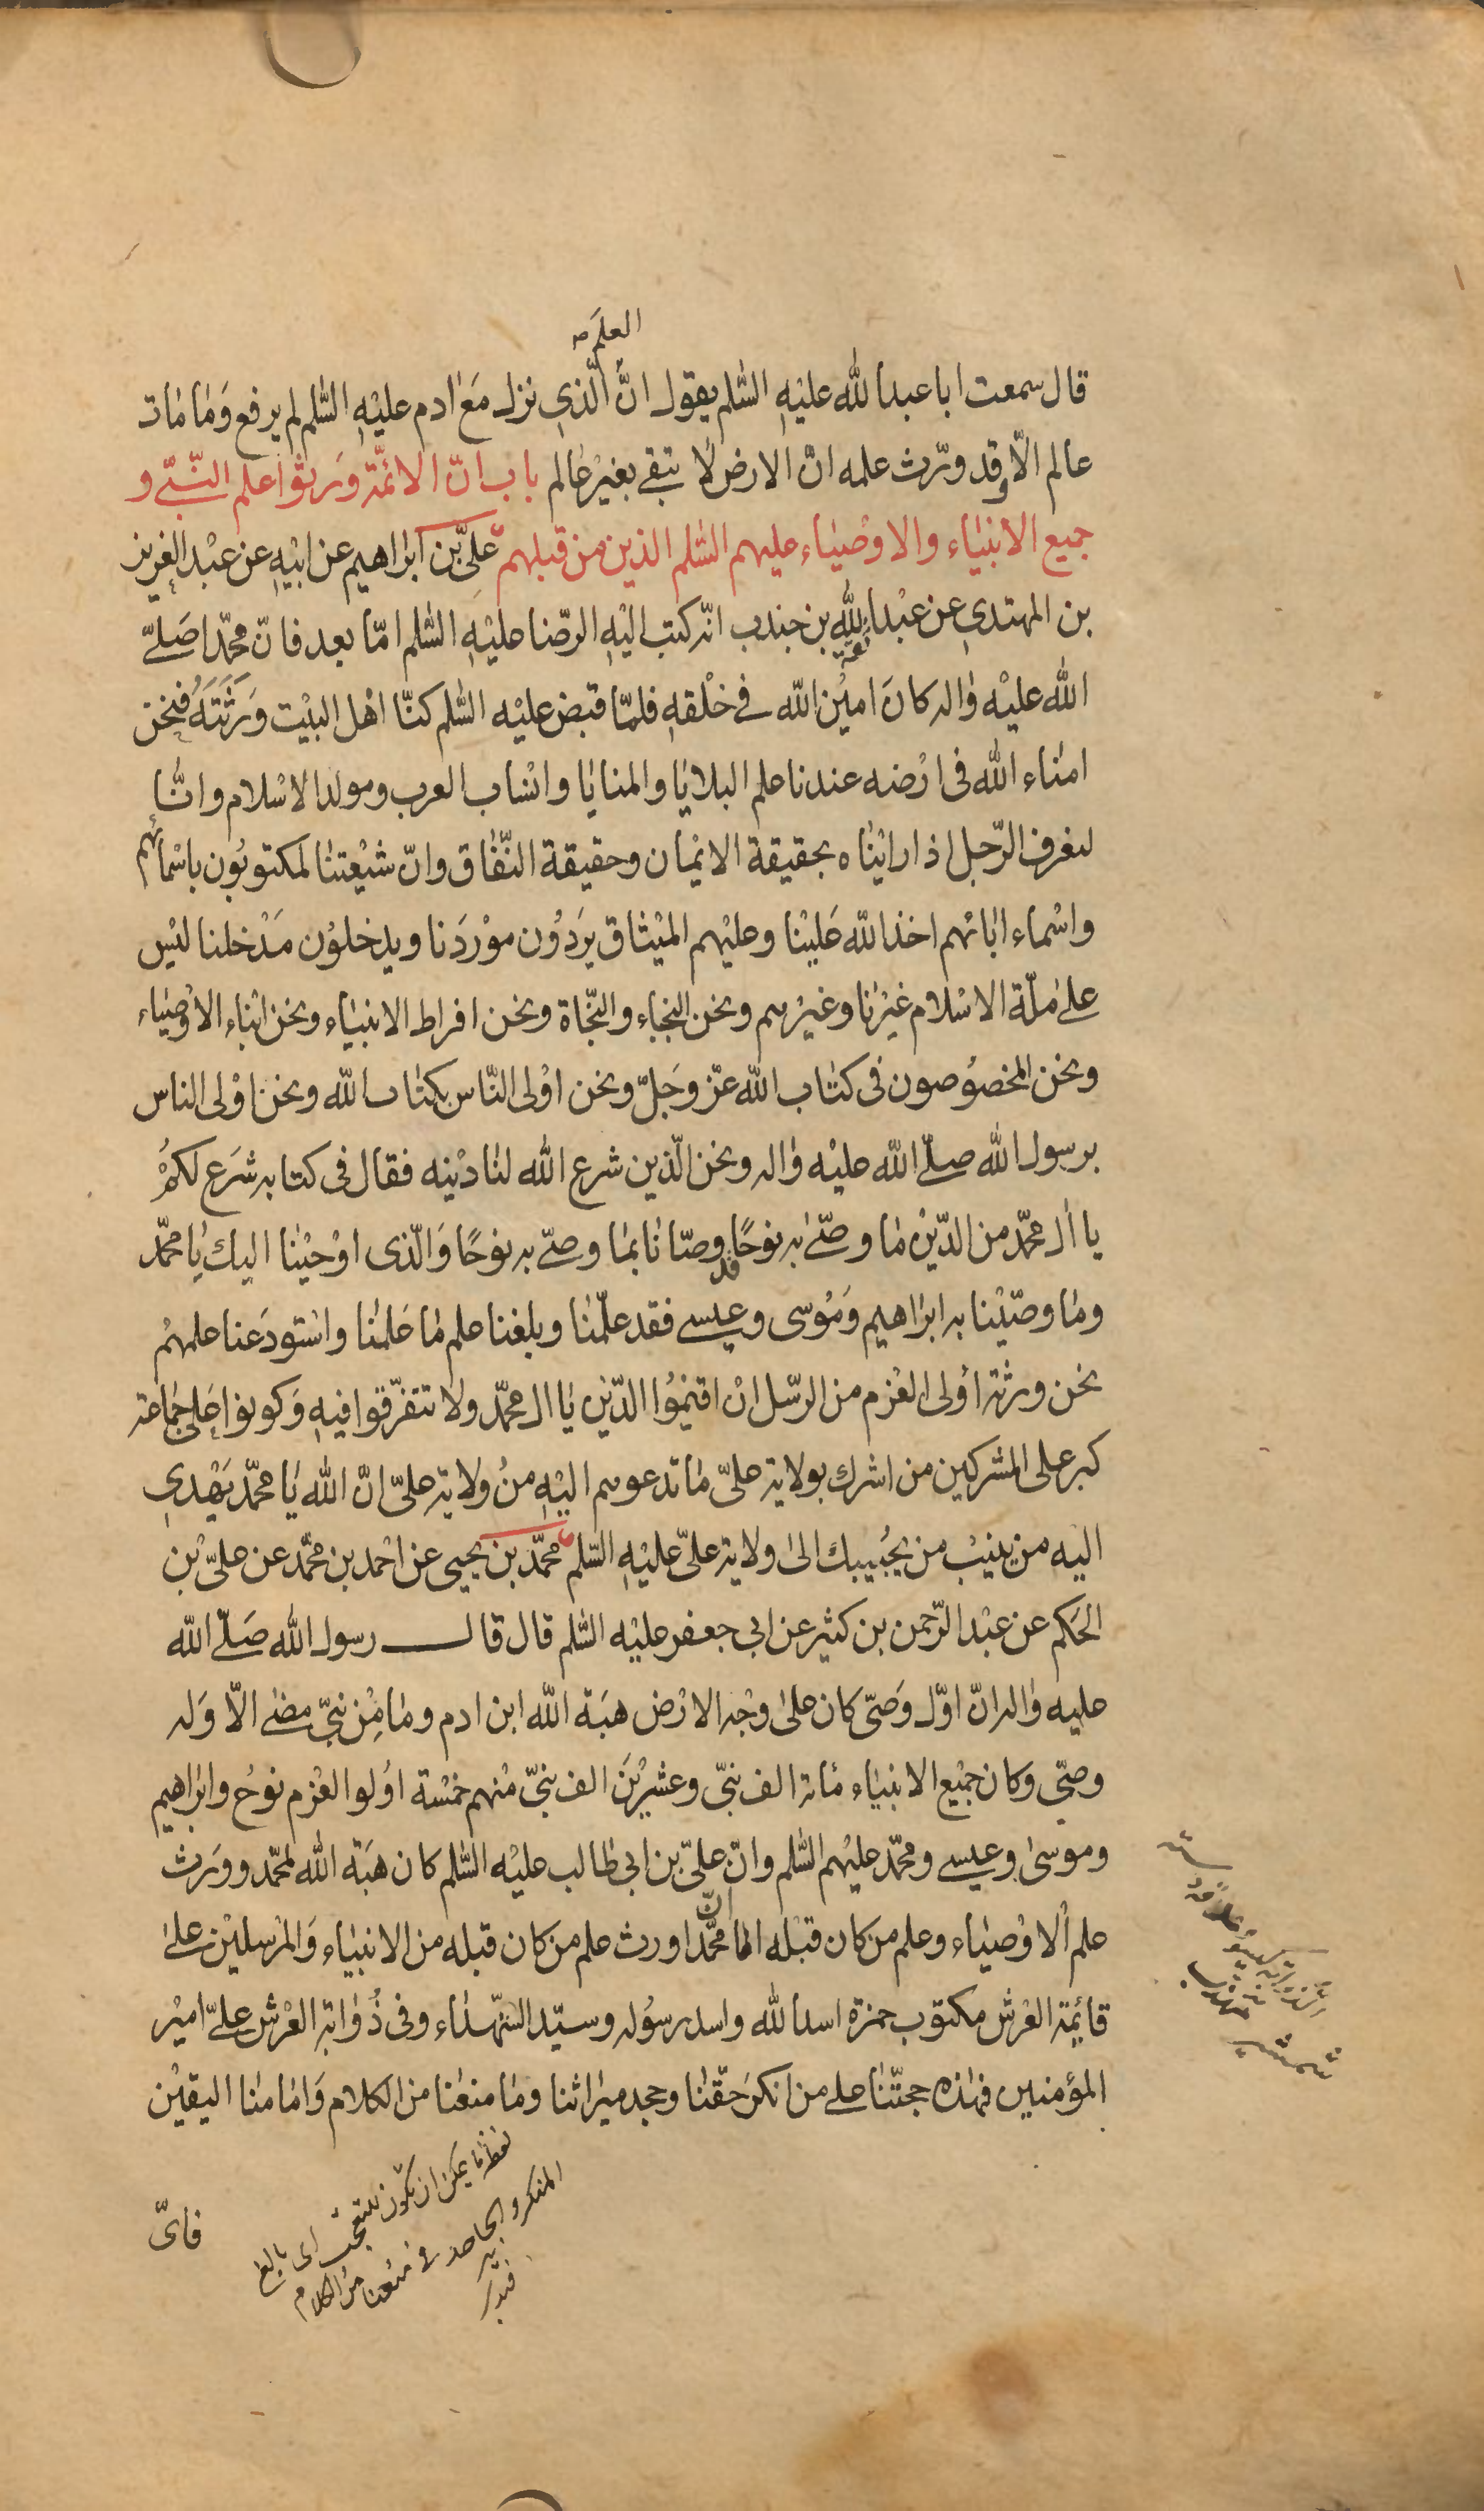 العلم صح
قال سمعت ابا عبدالله عليه السّلم يقول انّ الّذى نزل مع ادم عليه السّلم لم يرفع وما مات
عالم الّا وقد ورّث علمه انّ الارض لا تبقى بغير عالم باب انّ الائمّة ورثوا علم النّبىّ و
جميع الانبياء والاوصياء عليهم السّلم الذين من قبلهم علىّ بن ابراهيم عن ابيه عن عبد العزيز
بن المهتدى عن عبدالله بن جندب انّه كتب اليه الرّضا عليه السّلم امّا بعد فانّ محمّدا صلّى
الله عليه واله كان امين الله فى خلقه فلمّا قبض عليه السّلم كنّا اهل البيت ورثته فنحن
امناء الله فى ارضه عندنا علم البلايا والمنايا وانساب العرب ومولد الاسلام وانّا
لنعرف الرّجل اذا رايناه بحقيقة الايمان وحقيقة النّفاق وانّ شيعتنا لمكتوبون باسمائهم
واسماء ابائهم اخذ الله علينا وعليهم الميثاق يردون موردنا ويدخلون مدخلنا ليس
على ملّة الاسلام غيرنا وغيرهم ونحن النجباء والنّجاة ونحن افراط الانبياء ونحن ابناء الاوصياء
ونحن المخصوصون فى كتاب الله عزّ وجلّ ونحن اولى النّاس بكتاب الله ونحن اولى الناس
برسول الله صلّى الله عليه واله ونحن الّذين شرع الله لنا دينه فقال فى كتابه شرع لكم
يا ال محمّد من الدّين ما وصّى به نوحًا قد وصّانا بما وصّى به نوحًا والّذى اوحينا اليك يا محمّد
وما وصّينا به ابراهيم وموسى وعيسى فقد علّمنا وبلغنا علم ما علمنا واستودعنا علمهم
نحن ورثة اولى العزم من الرّسل ان اقيموا الدّين يا ال محمّد ولا تتفرّقوا فيه وكونوا على جماعة
كبر على المشركين من اشرك بولاية علىّ ما تدعوهم اليه من ولاية علىّ انّ الله يا محمّد يهدى
اليه من ينيب من يجيبك الى ولاية علىّ عليه السّلم محمّد بن يحيى عن احمد بن محمّد عن علىّ بن
الحكم عن عبد الرّحمن بن كثير عن ابى جعفر عليه السّلم قال قال رسول الله صلّى الله
عليه واله انّ اوّل وصىّ كان على وجه الارض هبة الله ابن ادم وما من نبىّ مضى الّا وله
وصىّ وكان جميع الانبياء مائة الف نبىّ وعشرين الف نبىّ منهم خمسة اولوا العزم نوح وابراهيم
وموسى وعيسى ومحمّد عليهم السّلم وانّ علىّ بن ابى طالب عليه السّلم كان هبة الله لمحمّد وورث
علم الاوصياء وعلم من كان قبله اما انّ محمّدا ورث علم من كان قبله من الانبياء والمرسلين على
قائمة العرش مكتوب حمزة اسد الله واسد رسوله وسيّد الشّهداء وفى ذوابة العرش علىّ امير
المؤمنين فهذه حجّتنا على من انكر حقّنا وجحد ميراثنا وما منعنا من الكلام وامامنا اليقين
فاىّ
لفظ ما يمكن ان يكون للتعجّب اى
المنكر والجاحد فى منعنا من الكلام
فتدبر